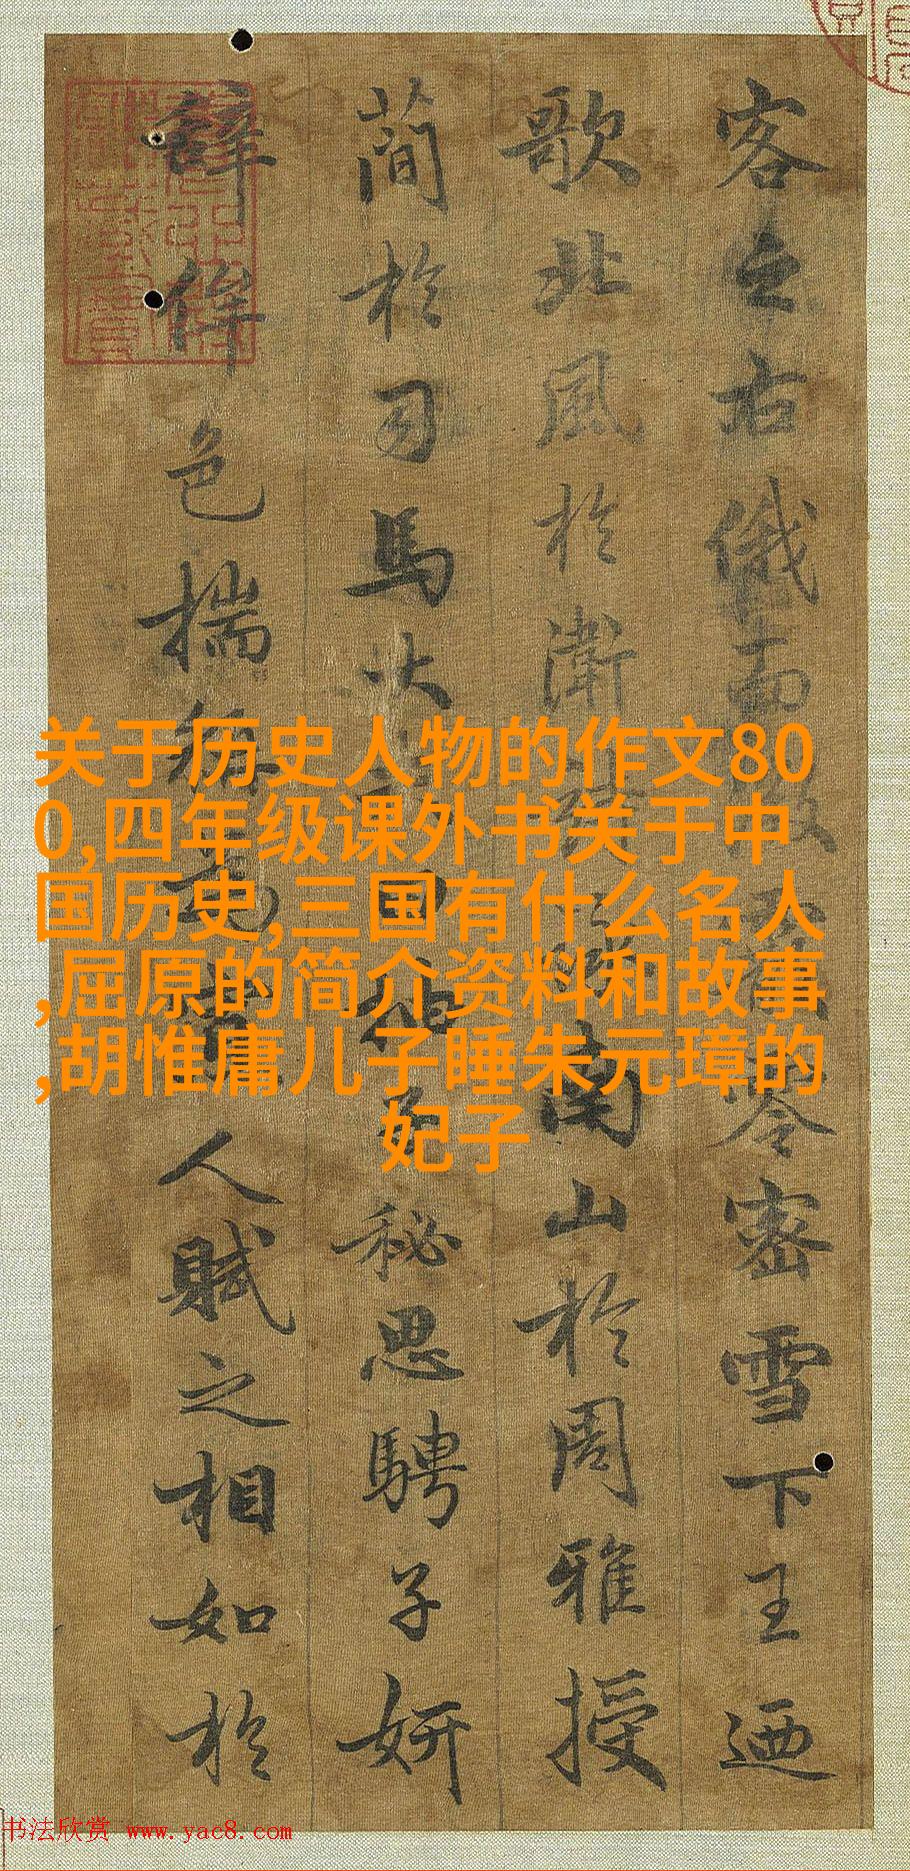 客之右俄而零密雪下王迺
歌北風於衛南山於周雅授
簡於司馬大秘思騁子妍
辭侔色揣稱人賦之相如於
关于历史人物的作文80
0,四年级课外书关于中
国历史,三国有什么名人
,屈原的简介资料和故事
,胡惟庸儿子睡朱元璋的
妃子
书法欣赏 www.yac8.com